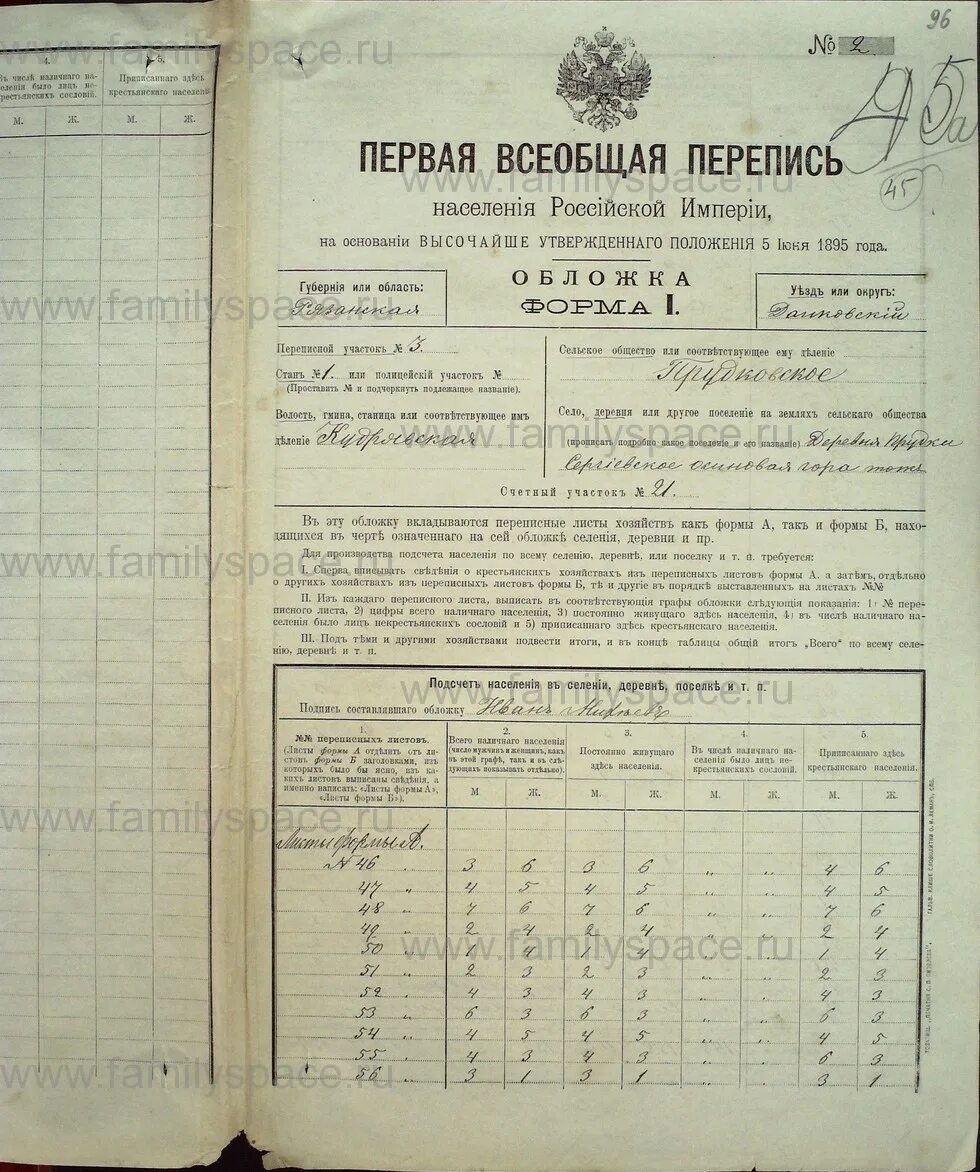 96
№ 2
45а
45
4.
5.
Въ числѣ наличнаго на-
селенія было лицъ не-
крестьянскихъ сословій.
Приписаннаго здѣсь
крестьянскаго населенія
М. Ж. М. Ж.
ПЕРВАЯ ВСЕОБЩАЯ ПЕРЕПИСЬ
населенія Россійской Имперіи,
на основаніи ВЫСОЧАЙШЕ УТВЕРЖДЕННАГО ПОЛОЖЕНІЯ 5 Іюня 1895 года.
ОБЛОЖКА
ФОРМА I.
Губернія или область:
Рязанская
Уѣздъ или округъ:
Данковскій
Переписной участокъ № 3.
Станъ № 1. или полицейскій участокъ №
(Проставить № и подчеркнуть подлежащее названіе).
Волость, гмина, станица или соотвѣтствующее имъ
дѣленіе Кудрявская
Сельское общество или соотвѣтствующее ему дѣленіе
Прудковское
Село, деревня или другое поселеніе на земляхъ сельскаго общества
(прописать подробно какое поселеніе и его названіе) Деревня Прудки
Сергіевское осиновая гора тожъ
Счетный участокъ № 21.
Въ эту обложку вкладываются переписные листы хозяйствъ какъ формы А, такъ и формы Б, нахо-
дящихся въ чертѣ означеннаго на сей обложкѣ селенія, деревни и пр.
Для производства подсчета населенія по всему селенію, деревнѣ, или поселку и т. п. требуется:
I. Сперва вписывать свѣдѣнія о крестьянскихъ хозяйствахъ изъ переписныхъ листовъ формы А. а затѣмъ, отдѣльно
о другихъ хозяйствахъ изъ переписныхъ листовъ формы Б, тѣ и другіе въ порядкѣ выставленныхъ на листахъ №№
II. Изъ каждаго переписного листа, выписать въ соотвѣтствующія графы обложки слѣдующія показанія: 1) № пере-
писного листа, 2) цифры всего наличнаго населенія, 3) постоянно живущаго здѣсь населенія, 4) въ числѣ наличнаго на-
селенія было лицъ некрестьянскихъ сословій и 5) приписаннаго здѣсь крестьянскаго населенія.
III. Подъ тѣми и другими хозяйствами подвести итоги, и въ концѣ таблицы общій итогъ „Всего" по всему селе-
нію, деревнѣ и т. п.
Подсчетъ населенія въ селеніи, деревнѣ, поселкѣ и т. п.
Подпись составлявшаго обложку Иванъ
1.
№№ переписныхъ листовъ.
(Листы формы А отдѣлить отъ ли-
стовъ формы Б заголовками, изъ
которыхъ было бы ясно, изъ ка-
кихъ листовъ выписаны свѣдѣнія, а
именно написать: «Листы формы А»,
«Листы формы Б»).
2.
Всего наличнаго населенія
(число мужчинъ и женщинъ, какъ
въ этой графѣ, такъ и въ слѣ-
дующихъ показывать отдѣльно).
3.
Постоянно живущаго
здѣсь населенія.
4.
Въ числѣ наличнаго на-
селенія было лицъ не-
крестьянскихъ сословій.
5.
Приписаннаго здѣсь
крестьянскаго населенія.
М Ж. М. Ж. М. Ж. М. Ж.
Листы формы А.
№ 46 „ 3 6 3 6 „ „ 4 6
47 „ 4 5 4 5 „ „ 4 5
48 „ 7 6 7 6 „ „ 7 6
49 „ 2 4 2 4 „ „ 2 4
50 „ 1 4 1 4 „ „ 1 4
51 „ 2 3 2 3 „ „ 2 3
52 „ 4 3 4 3 „ „ 4 3
53 „ 6 3 6 3 „ „ 6 3
54 „ 4 5 4 5 „ „ 4 5
55 „ 4 3 4 3 „ „ 6 3
56 „ 3 1 3 1 „ „ 3 1
www.familyspace.ru
www.familyspace.ru
www.familyspace.ru
www.familyspace.ru
www.familyspace.ru
www.familyspace.ru
www.familyspace.ru
www.familyspace.ru
www.familyspace.ru